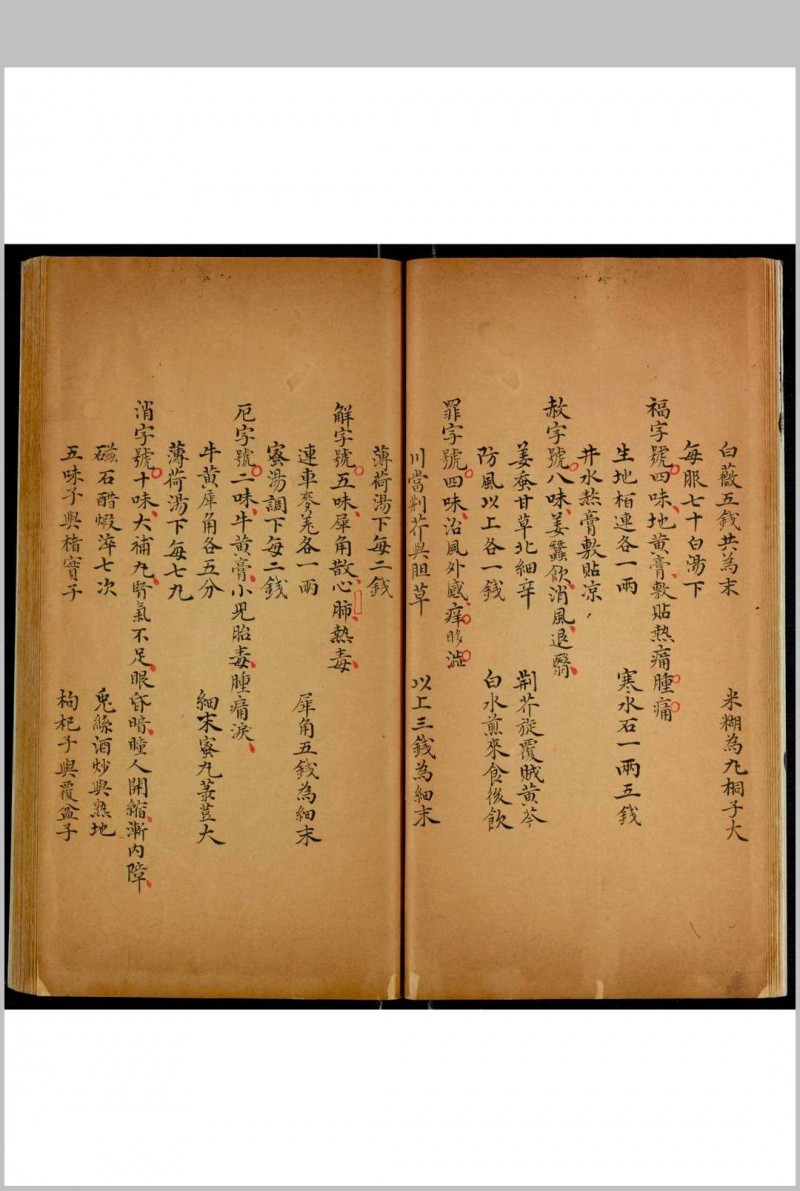 白薇五錢共為末 米糊為九桐子大
每服七十白湯下
福字號四味地黃膏敷貼熱痛腫痛
生地栢連各一兩 寒水石一兩五錢
井水熬膏敷貼凉
赦字號八味姜蠶飲消風退翳
姜蚕甘草北細辛 荆芥旋覆賊黃芩
防風以上各一錢 白水煎來食後飲
罪字號四味治風外感痒眵澁
川當荆芥與胆草 以上三錢為細末
薄荷湯下每二錢
解字號五味犀角散心肺熱毒
連車麥羌各一兩 犀角五錢為細末
蜜湯調下每二錢
厄字號二味牛黃膏小児胎毒腫痛淚
牛黃犀角各五分 細末蜜九菉荳大
薄荷湯下每七九
消字號十味大補九腎氣不足眼昏暗瞳人開縮漸內障
磁石醋煅淬七次 兎絲酒炒與熟地
五味子與楮寳子 枸杞子與覆盆子